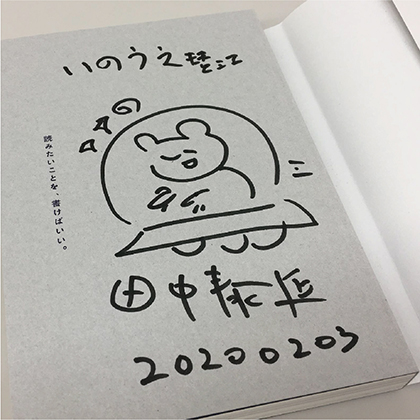 いのうえ
読みたいことを、書けばいい。
田中泰延
20200203